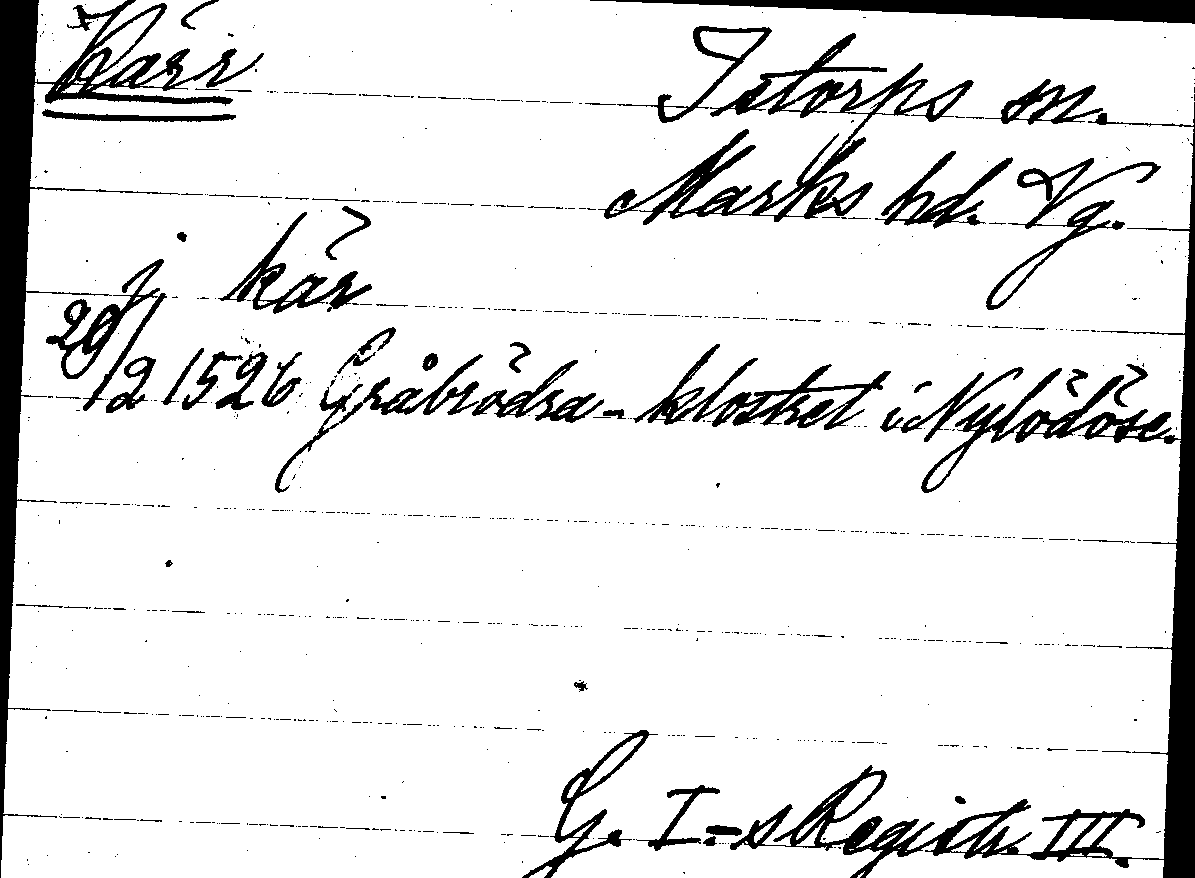 +Kärr
Istorps sn.
Marks hd. Vg.
j kär
29/2 1526 Gråbrödra-klostret i Nylödöse.
G. I.-s Registr. III.